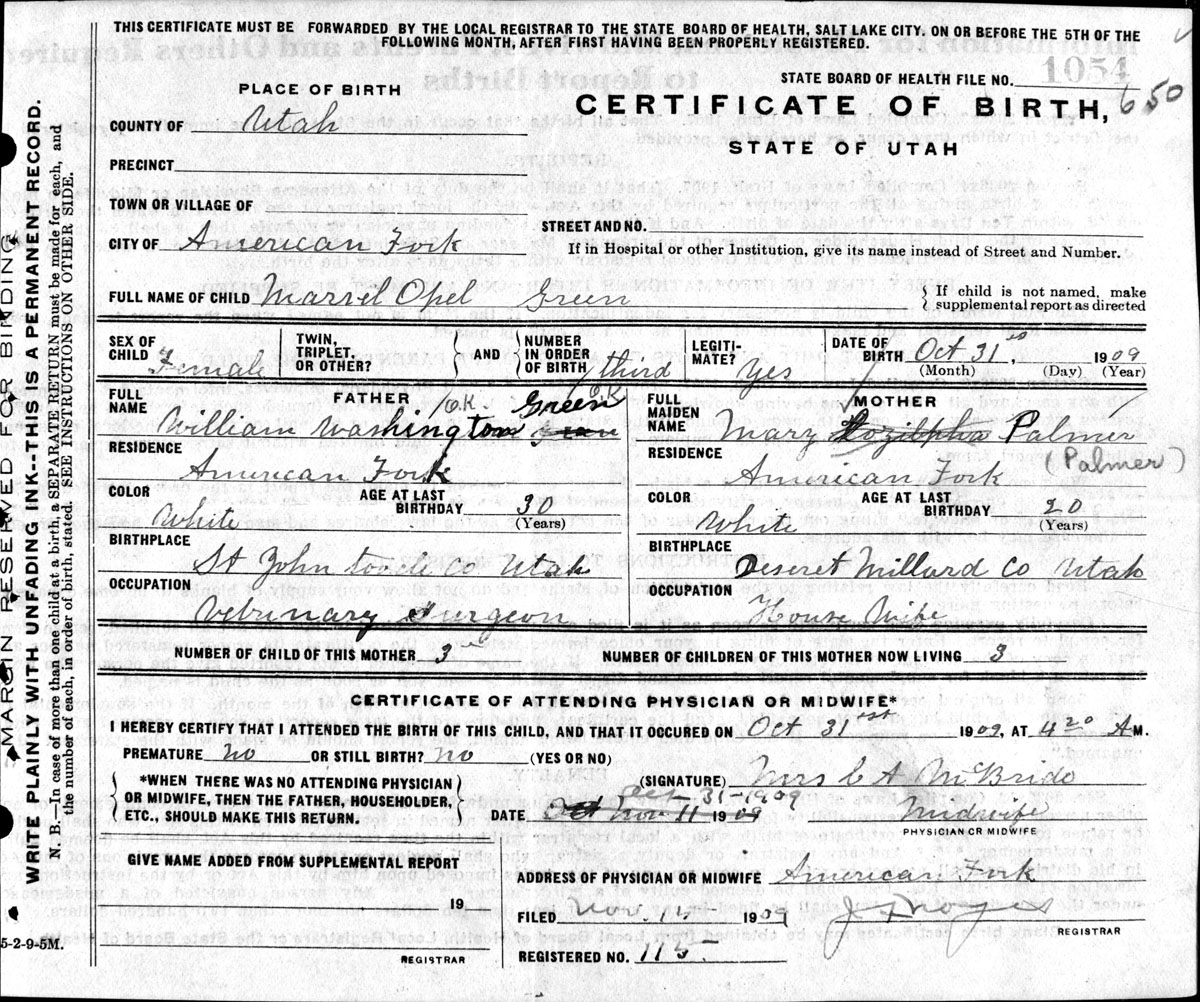 THIS CERTIFICATE MUST BE FORWARDED BY THE LOCAL REGISTRAR TO THE STATE BOARD OF HEALTH, SALT LAKE CITY, ON OR BEFORE THE 5TH OF THE
FOLLOWING MONTH, AFTER FIRST HAVING BEEN PROPERLY REGISTERED.
STATE BOARD OF HEALTH FILE NO. 1054
PLACE OF BIRTH
CERTIFICATE OF BIRTH, 650
COUNTY OF Utah
STATE OF UTAH
PRECINCT
TOWN OR VILLAGE OF
STREET AND NO.
CITY OF American Fork
If in Hospital or other Institution, give its name instead of Street and Number.
FULL NAME OF CHILD Marvel Opel Green
If child is not named, make
supplemental report as directed
SEX OF CHILD Female
TWIN, TRIPLET, OR OTHER?
AND
NUMBER IN ORDER OF BIRTH third
LEGITI-MATE? Yes
DATE OF BIRTH Oct 31 1909
(Month) (Day) (Year)
FATHER
FULL NAME William Washington Green
O.K. O.K.
RESIDENCE
American Fork
COLOR White
AGE AT LAST BIRTHDAY 30
(Years)
BIRTHPLACE
St John Tooele Co Utah
OCCUPATION
Vetrinary Surgeon
MOTHER
FULL MAIDEN NAME Mary Palmer
RESIDENCE (Palmer)
American Fork
COLOR White
AGE AT LAST BIRTHDAY 20
(Years)
BIRTHPLACE
Deseret Millard Co Utah
OCCUPATION
House Wife
NUMBER OF CHILD OF THIS MOTHER 3
NUMBER OF CHILDREN OF THIS MOTHER NOW LIVING 3
CERTIFICATE OF ATTENDING PHYSICIAN OR MIDWIFE*
I HEREBY CERTIFY THAT I ATTENDED THE BIRTH OF THIS CHILD, AND THAT IT OCCURED ON Oct 31st 1909, AT 4 20 A M.
PREMATURE no OR STILL BIRTH? no (YES OR NO)
*WHEN THERE WAS NO ATTENDING PHYSICIAN
OR MIDWIFE, THEN THE FATHER, HOUSEHOLDER,
ETC., SHOULD MAKE THIS RETURN.
(SIGNATURE) Mrs C A McBride
31-1909
DATE Nov 11 1909
Midwife
PHYSICIAN OR MIDWIFE
GIVE NAME ADDED FROM SUPPLEMENTAL REPORT
19
REGISTRAR
ADDRESS OF PHYSICIAN OR MIDWIFE American Fork
FILED Nov. 12 1909
REGISTRAR
REGISTERED NO. 115
5-2-9-5M.
MARGIN RESERVED FOR BINDING
WRITE PLAINLY WITH UNFADING INK--THIS IS A PERMANENT RECORD.
N. B.—In case of more than one child at a birth, a SEPARATE RETURN must be made for each, and
the number of each, in order of birth, stated. SEE INSTRUCTIONS ON OTHER SIDE.